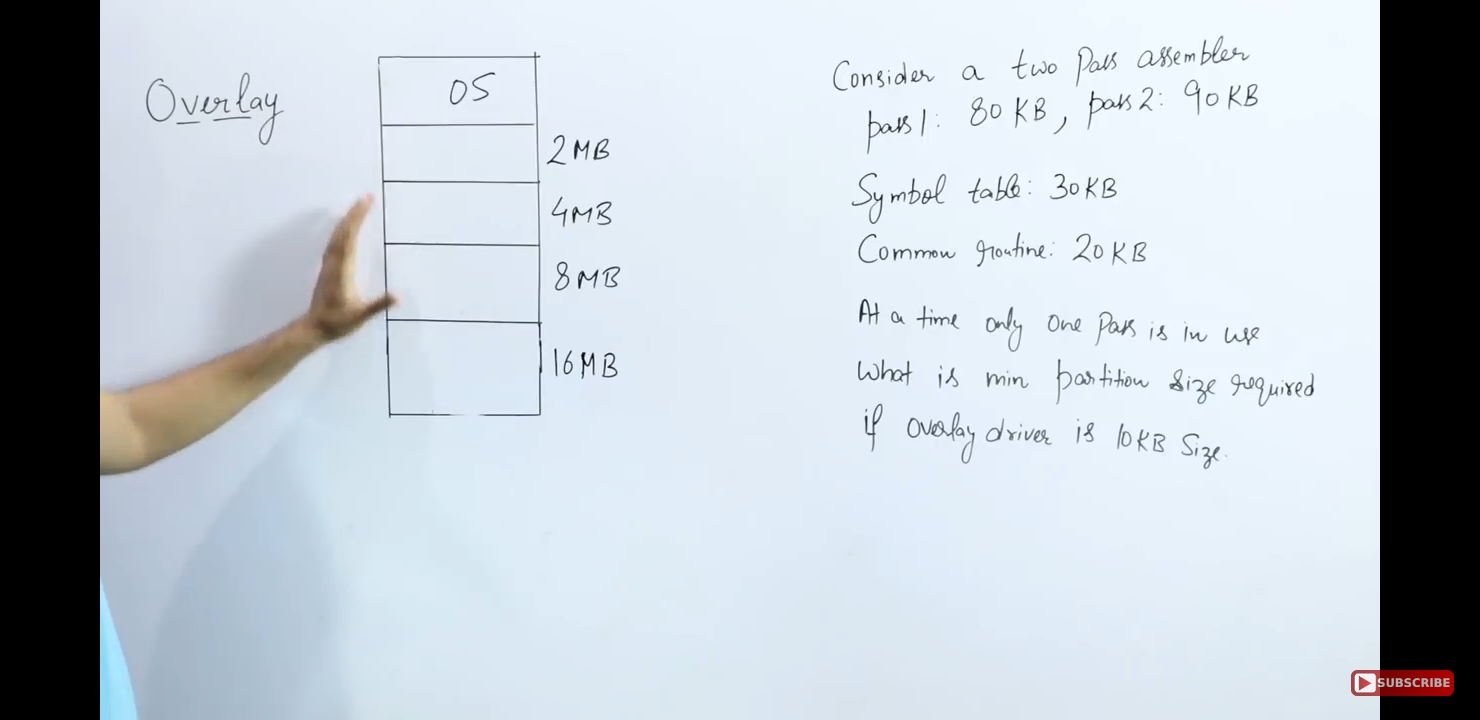 Overlay
OS
2MB
4MB
8MB
16MB
Consider a two Pass assembler
pass 1: 80 KB, pass 2: 90KB
Symbol table: 30KB
Common routine: 20KB
At a time only one Pass is in use
What is min partition size required
if overlay driver is 10KB Size.
SUBSCRIBE